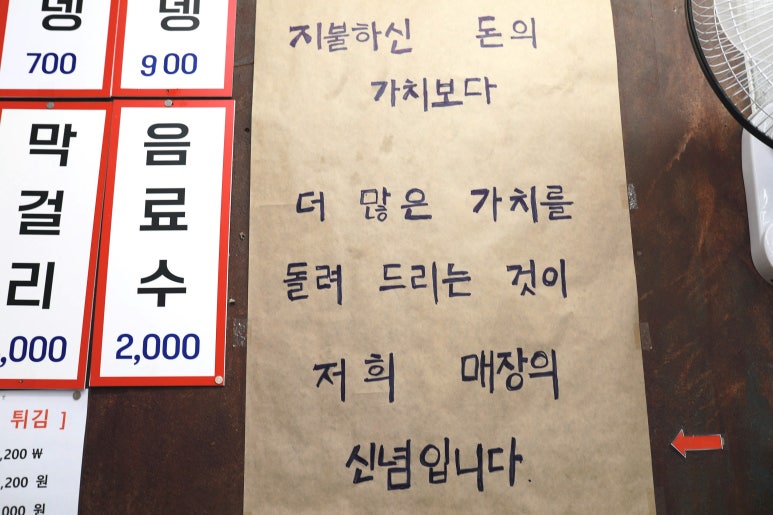 뎅
700
뎅
900
막걸리
,000
음료수
2,000
튀김 ]
,200 ₩
,200 원
000 원
지불하신 돈의
가치보다
더 많은 가치를
돌려 드리는 것이
저희 매장의
신념입니다.